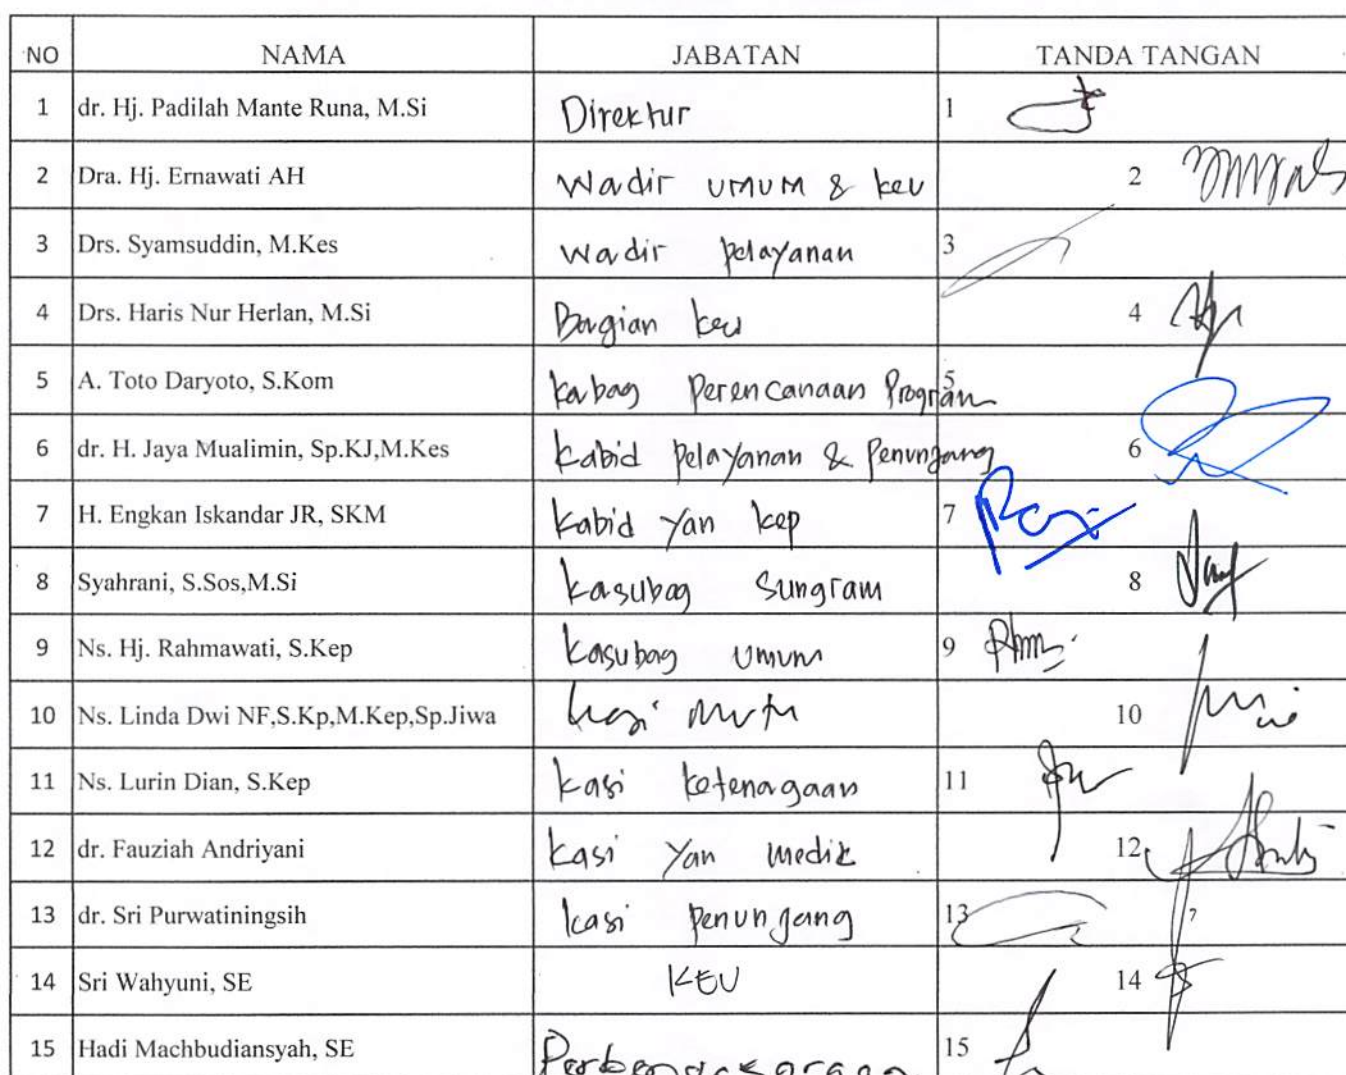 NO NAMA JABATAN TANDA TANGAN
1 dr. Hj. Padilah Mante Runa, M.Si Direktur 1
2 Dra. Hj. Ernawati AH Wadir umum & keu 2
3 Drs. Syamsuddin, M.Kes Wadir pelayanan 3
4 Drs. Haris Nur Herlan, M.Si Bagian keu 4
5 A. Toto Daryoto, S.Kom kabag Perencanaan Program 5
6 dr. H. Jaya Mualimin, Sp.KJ,M.Kes kabid pelayanan & Penungang 6
7 H. Engkan Iskandar JR, SKM kabid Yan kep 7
8 Syahrani, S.Sos,M.Si kasubag Sungram 8
9 Ns. Hj. Rahmawati, S.Kep kasubag umum 9
10 Ns. Linda Dwi NF,S.Kp,M.Kep,Sp.Jiwa kasi mutu 10
11 Ns. Lurin Dian, S.Kep kasi ketenagaan 11
12 dr. Fauziah Andriyani kasi Yan medik 12
13 dr. Sri Purwatiningsih kasi penungang 13
14 Sri Wahyuni, SE KEU 14
15 Hadi Machbudiansyah, SE 15